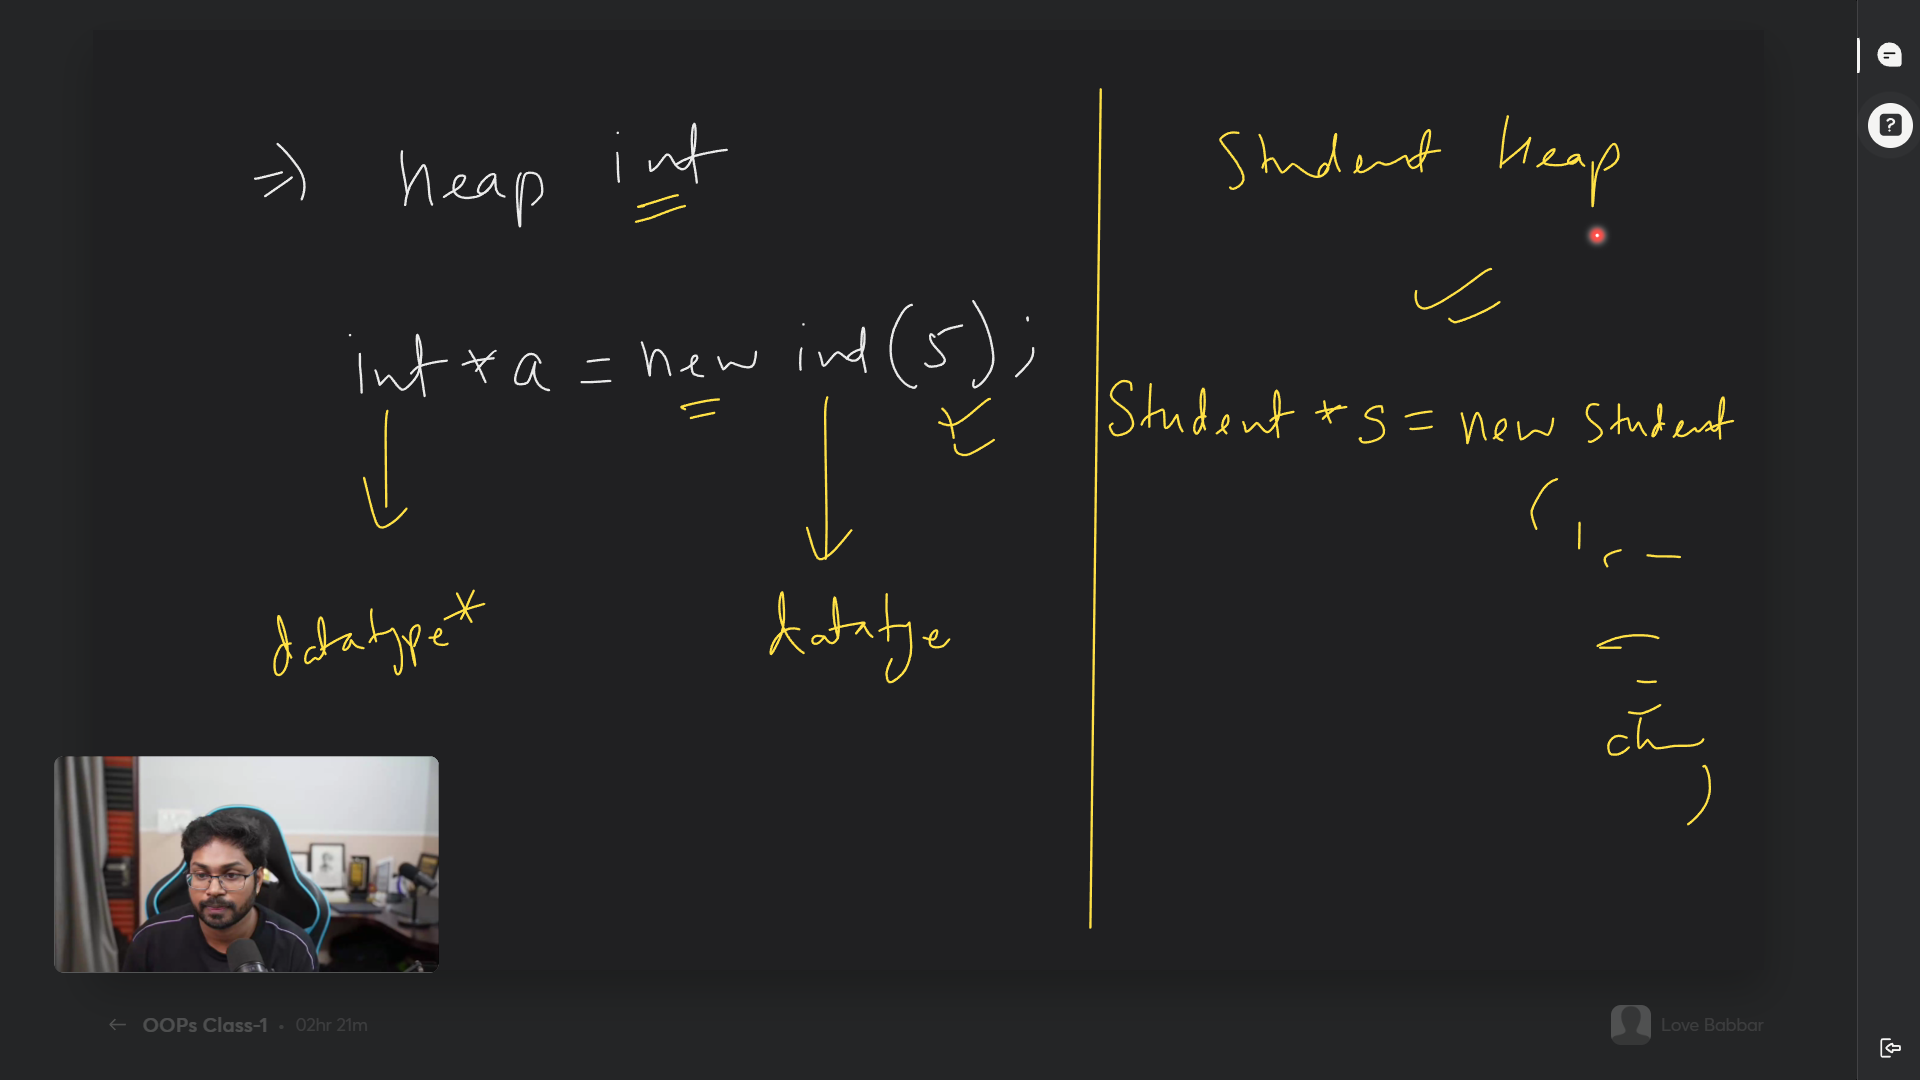 => heap int
int * a = new int(5);
datatype*
datatye
Student heap
Student * s = new Student
(
ch
)
← OOPs Class-1 • 02hr 21m
Love Babbar
?